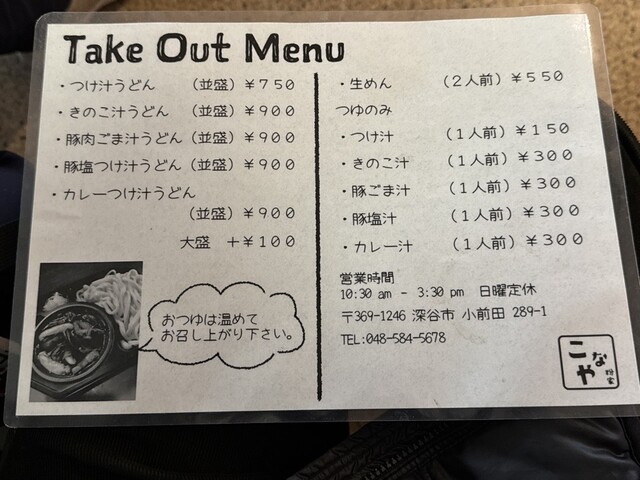 Take Out Menu
・つけ汁うどん （並盛）￥７５０
・きのこ汁うどん （並盛）￥９００
・豚肉ごま汁うどん（並盛）￥９００
・豚塩つけ汁うどん（並盛）￥９００
・カレーつけ汁うどん
（並盛）￥９００
大盛 ＋￥１００
おつゆは温めて
お召し上がり下さい。
・生めん （２人前）￥５５０
つゆのみ
・つけ汁 （１人前）￥１５０
・きのこ汁 （１人前）￥３００
・豚ごま汁 （１人前）￥３００
・豚塩汁 （１人前）￥３００
・カレー汁 （１人前）￥３００
営業時間
10:30 am - 3:30 pm 日曜定休
〒369-1246 深谷市 小前田 289-1
TEL:048-584-5678
こなや
粉家